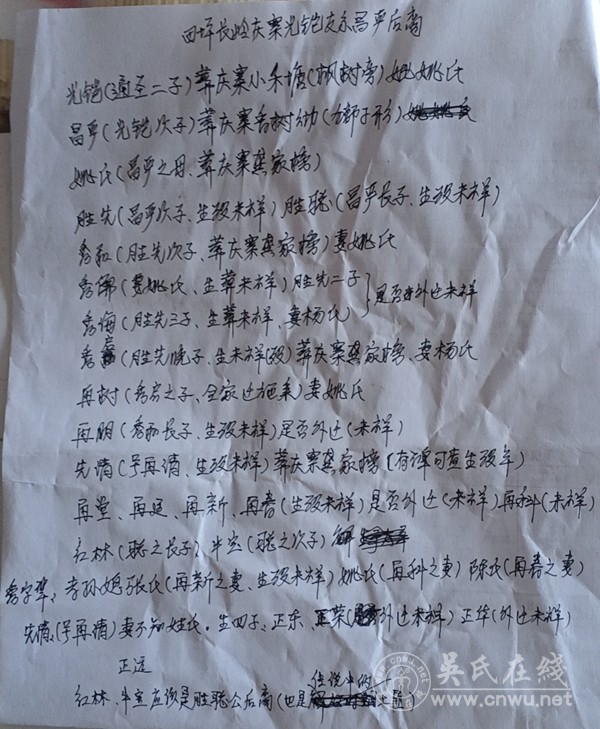 田坪长岭庆寨光铠支系昌平后裔
光铠(通圣二子)葬庆寨小禾塘(枫树旁)姚姚氏
昌平(光铠次子)葬庆寨香树坳(方狮子形)
姚氏(昌平之母、葬庆寨龚家榜)
胜先(昌平次子、生殁未祥)胜聪(昌平长子、生殁未祥)
秀和(胜先次子、葬庆寨龚家榜)妻姚氏
秀儒(妻姚氏、生葬未祥)胜先二子
秀海(胜先三子、生葬未祥、妻杨氏)
是否外迁未祥
秀(胜先晚子、生未祥(殁)葬庆寨龚家榜、妻杨氏
再树(秀之子、全家迁施秉)妻姚氏
再朋(秀和长子、生殁未祥)是否外迁(未祥)
先清(号再清、生殁未祥)葬庆寨龚家榜(有谭可查生殁年)
再堂、再廷、再新、再春(生殁未祥)是否外迁(未祥)再科(未祥)
红林(聪之长子)、半宝(聪之次子)
秀字辈:孝孙媳张氏(再新之妻、生殁未祥)姚氏(再科之妻)陈氏(再春之妻)
先清:(号再清)妻不知姓氏.生四子:正东、正荣(外迁未祥)正华(外迁未祥)
正远
传说中的
红林、半宝应该是胜聪公后裔(也是
吴氏在线
www.cnwu.net